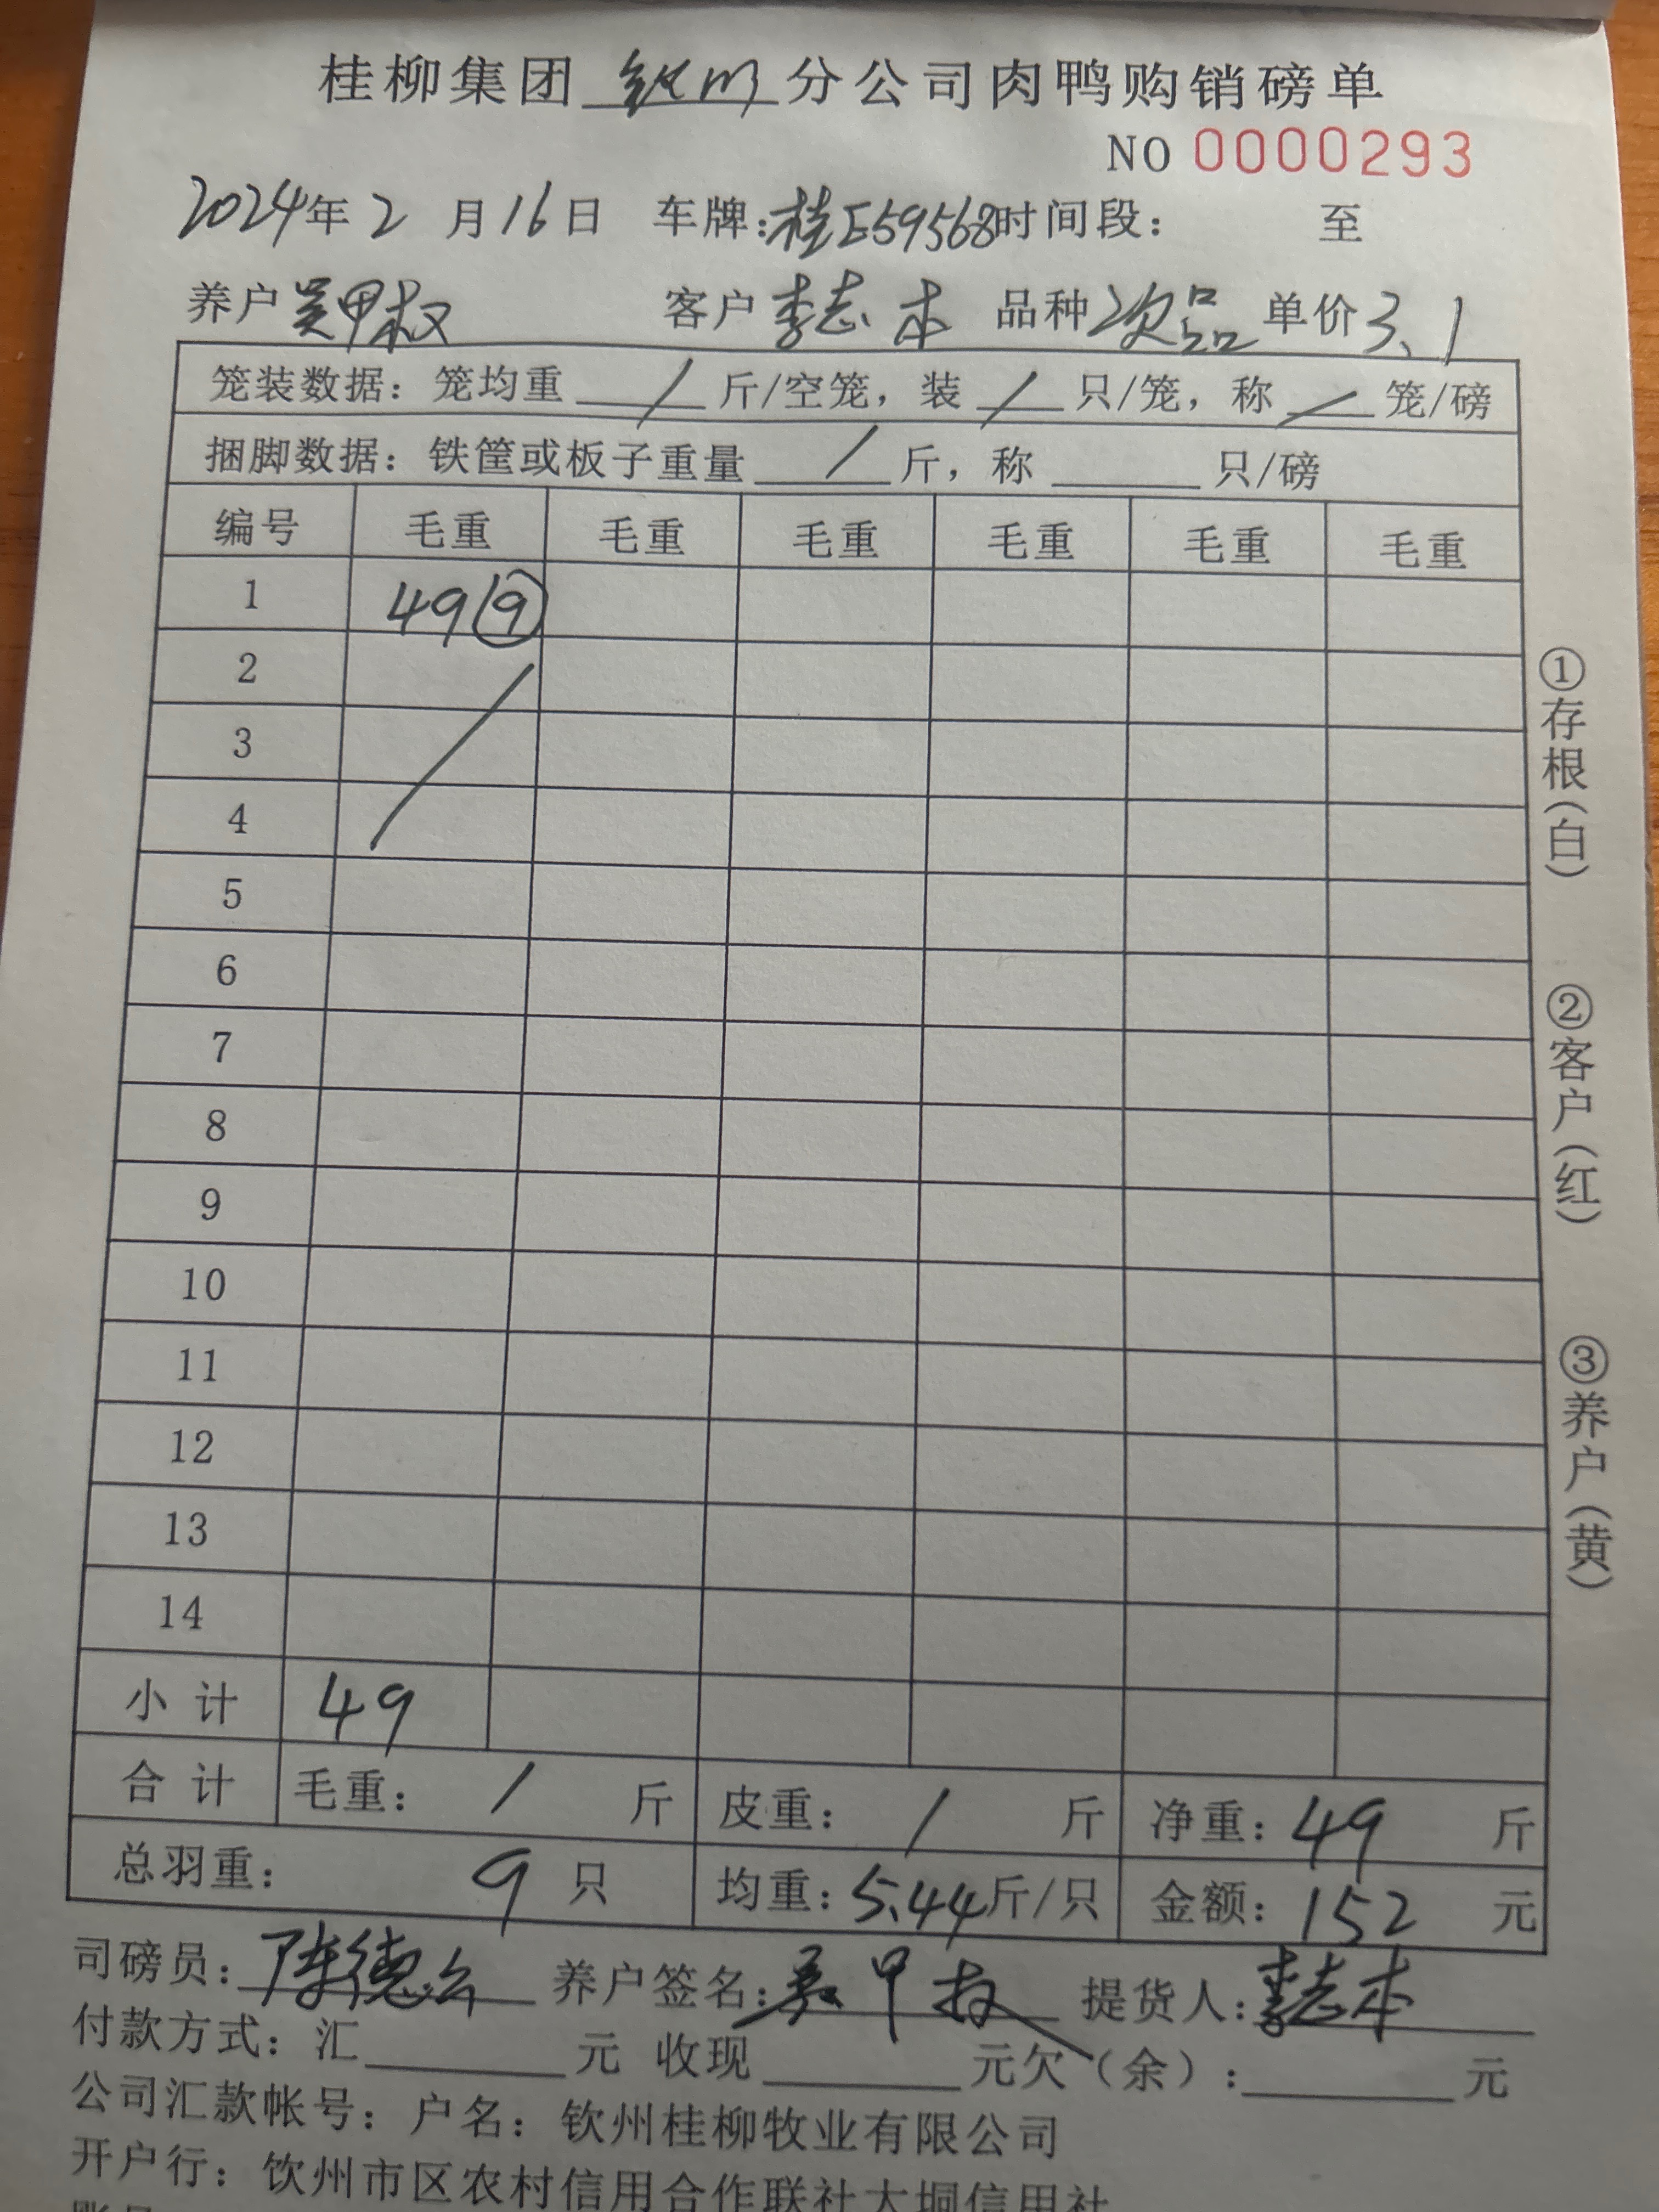 桂柳集团钦州分公司肉鸭购销磅单
NO 0000293
2024年2月16日 车牌:桂E59568时间段: 至
养户吴甲权 客户李志本 品种次品 单价3.1
笼装数据: 笼均重 / 斤/空笼, 装 / 只/笼, 称 / 笼/磅
捆脚数据: 铁筐或板子重量 / 斤, 称 只/磅
编号 毛重 毛重 毛重 毛重 毛重 毛重
1 49 ⑨
2
3
4
5
6
7
8
9
10
11
12
13
14
小计 49
合计 毛重: / 斤 皮重: / 斤 净重: 49 斤
总羽重: 9 只 均重: 5.44斤/只 金额: 152 元
司磅员: 陈德 养户签名: 吴甲权 提货人: 李志本
付款方式: 汇 元 收现 元欠(余): 元
公司汇款帐号: 户名: 钦州桂柳牧业有限公司
开户行: 钦州市区农村信用合作联社大垌信用社
①存根(白)
②客户(红)
③养户(黄)